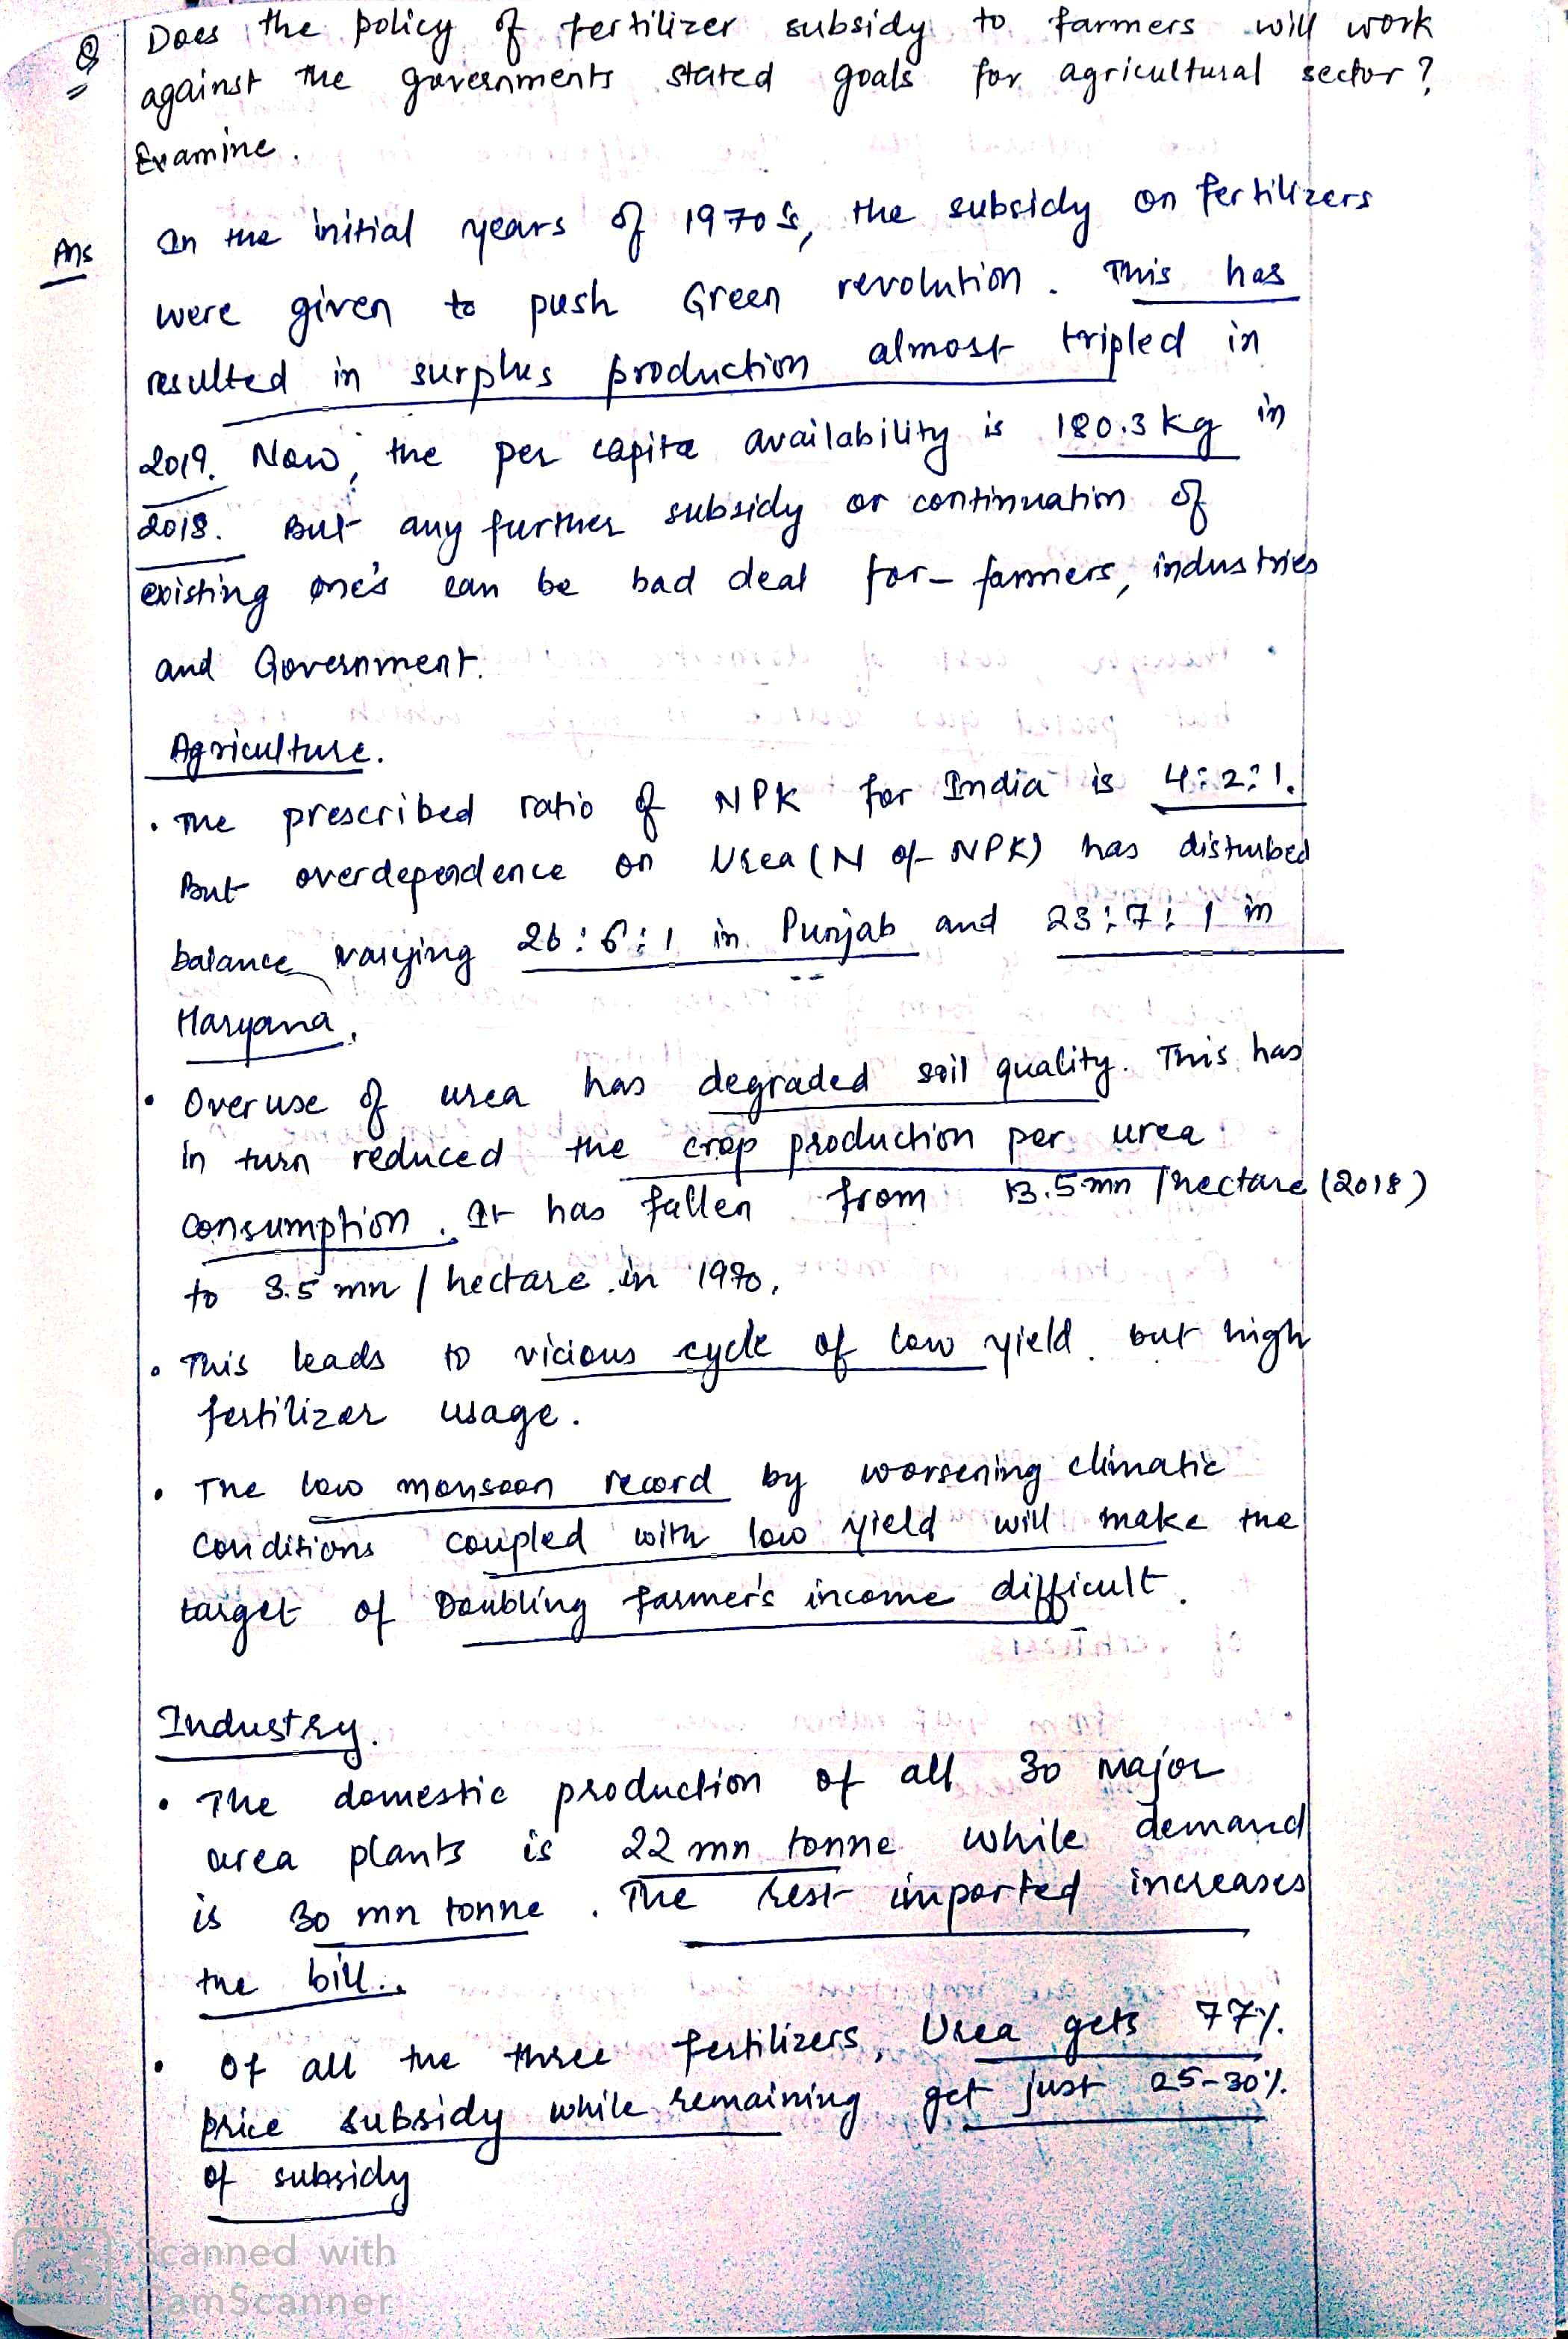 Q Does the policy of fertilizer subsidy to farmers will work
against the governments stated goals for agricultural sector?
Examine.
Ans In the initial years of 1970s, the subsidy on fertilizers
were given to push Green revolution. This has
resulted in surplus production almost tripled in
2019. Now, the per capita availability is 180.3 kg in
2018. But any further subsidy or continuation of
existing one's can be bad deal for - farmers, industries
and Government.
Agriculture.
• The prescribed ratio of NPK for India is 4:2:1.
But overdependence on Urea (N of NPK) has disturbed
balance varying 26:6:1 in Punjab and 23:7:1 in
Haryana.
• Overuse of urea has degraded soil quality. This has
in turn reduced the crop production per urea
consumption. It has fallen from 13.5 mn /hectare (2018)
to 3.5 mn / hectare in 1970.
• This leads to vicious cycle of low yield but high
fertilizer usage.
• The low monsoon record by worsening climatic
conditions coupled with low yield will make the
target of Doubling farmer's income difficult.
Industry.
• The domestic production of all 30 major
urea plants is 22 mn tonne while demand
is 30 mn tonne. The rest imported increases
the bill.
• Of all the three fertilizers, Urea gets 77%
price subsidy while remaining get just 25-30%
of subsidy
CS Scanned with
CamScanner